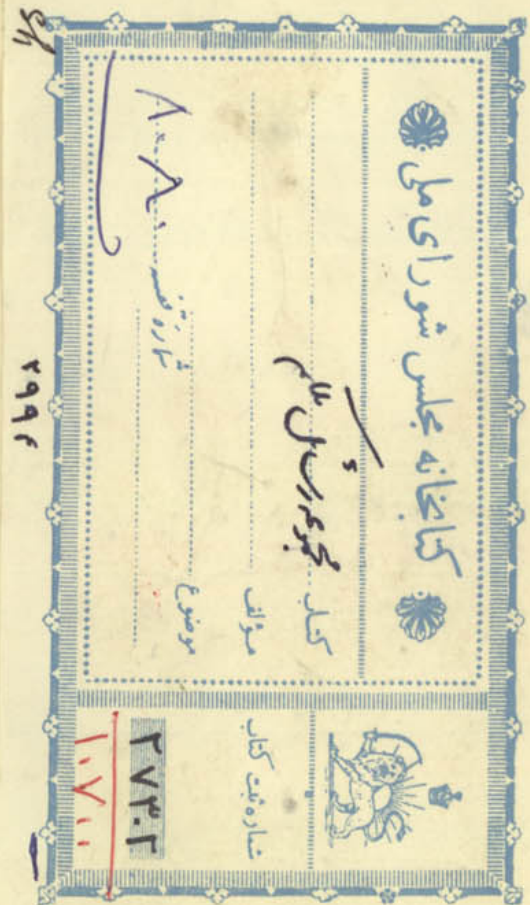 کتابخانه مجلس شورای ملی
کتاب مجموعه رسائل
مؤلف
موضوع
شماره قفسه ۸۰۸۰
شماره ثبت کتاب
۲۷۳۰۲
۱۰۷۰۰